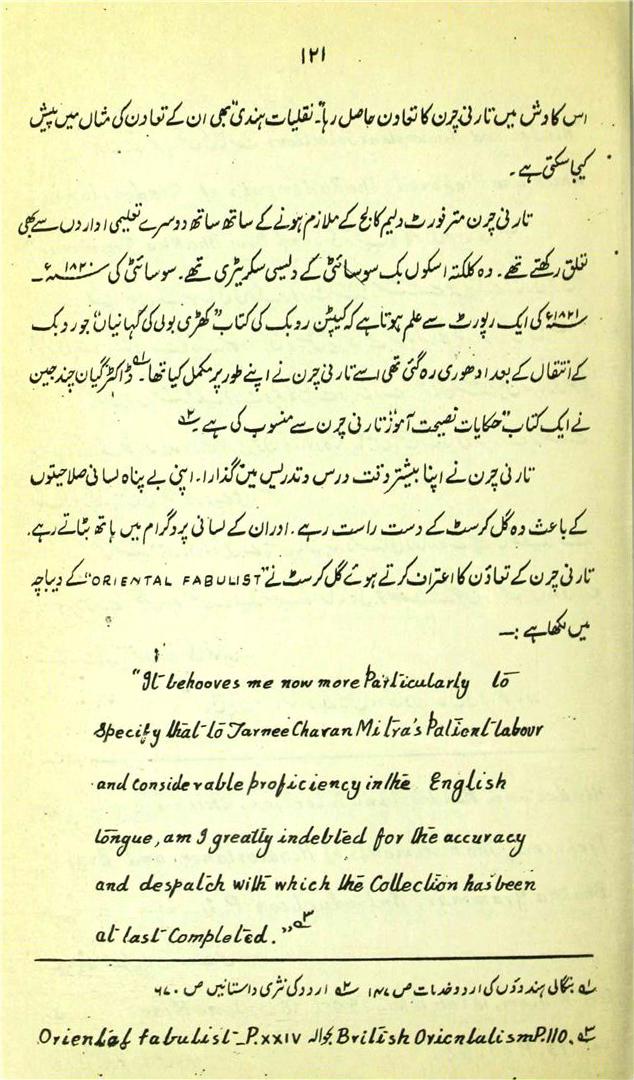 ۱۲۱
اس کاوش میں تارنی چرن کا تعاون حاصل رہا۔ نقلیات ہندی بھی ان کے تعاون کی مثال میں پیش
کیجا سکتی ہے۔
تارنی چرن متر فورٹ ولیم کالج کے ملازم ہونے کے ساتھ ساتھ دوسرے تعلیمی اداروں سے بھی
تعلق رکھتے تھے۔ وہ کلکتہ اسکول بک سوسائٹی کے دلیسی سکریٹری تھے۔ سوسائٹی کی ۱۸۲۰ء۔
۱۸۲۱ء کی ایک رپورٹ سے علم ہوتا ہے کہ کیپٹن روبک کی کتاب "کھڑی بولی کی کہانیاں" جو روبک
کے انتقال کے بعد ادھوری رہ گئی تھی اسے تارنی چرن نے اپنے طور پر مکمل کیا تھا۔ ۱؎ ڈاکٹر گیان چند جین
نے ایک کتاب "حکایات نصیحت آموز" تارنی چرن سے منسوب کی ہے۔ ۲؎
تارنی چرن نے اپنا بیشتر وقت درس و تدریس میں گذارا۔ اپنی بے پناہ لسانی صلاحیتوں
کے باعث وہ گل کرسٹ کے دست راست رہے۔ اور ان کے لسانی پروگرام میں ہاتھ بٹاتے رہے۔
تارنی چرن کے تعاون کا اعتراف کرتے ہوئے گل کرسٹ نے "ORIENTAL FABULIST" کے دیباچہ
میں لکھا ہے :—
"It behooves me now more Particularly to
specify that to Tarnee Charan Mitra's Patient labour
and considerable proficiency in the English
tongue, am I greatly indebted for the accuracy
and despatch with which the Collection has been
at last Completed." ۳؎
۱؎ بنگالی ہندوؤں کی اردو خدمات ص ۱۴۷ ۲؎ اردو کی نثری داستانیں ص ۶۷۰
۳؎ Oriental fabulist_P.xxiv بحوالہ British Orientalism P.110.